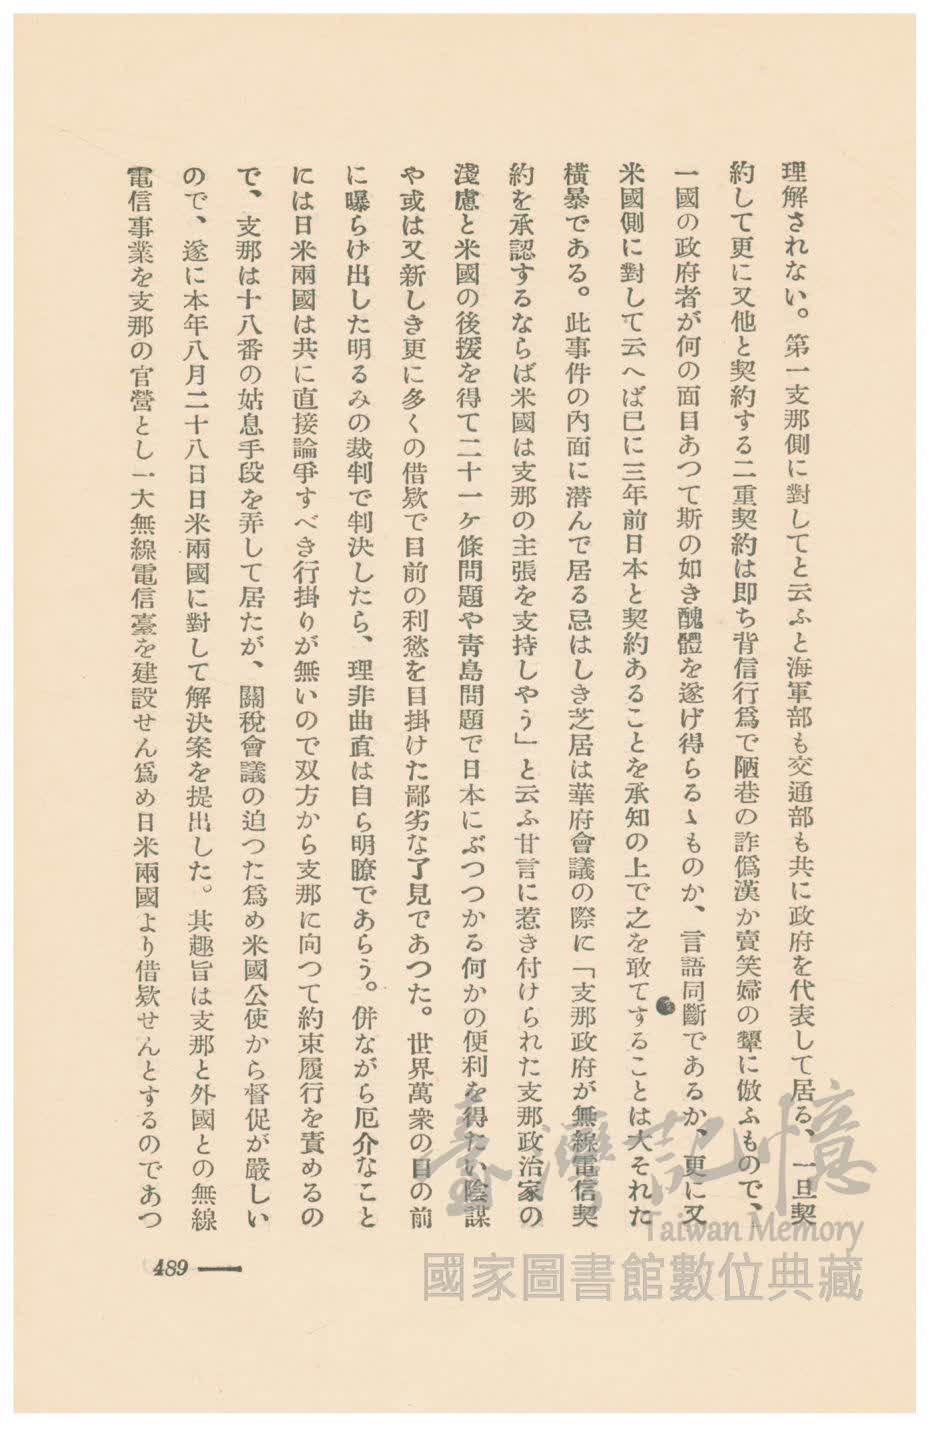 理解されない。第一支那側に對してと云ふと海軍部も交通部も共に政府を代表して居る、一旦契
約して更に又他と契約する二重契約は即ち背信行爲で陋巷の詐僞漢か賣笑婦の顰に倣ふもので、
一國の政府者が何の面目あつて斯の如き醜體を遂げ得らるゝものか、言語同斷であるか、更に又
米國側に對して云へば已に三年前日本と契約あることを承知の上で之を敢てすることは大それた
橫暴である。此事件の內面に潜んで居る忌はしき芝居は華府會議の際に「支那政府が無線電信契
約を承認するならば米國は支那の主張を支持しやう」と云ふ甘言に惹き付けられた支那政治家の
淺慮と米國の後援を得て二十一ケ條問題や靑島問題で日本にぶつつかる何かの便利を得たい陰謀
や或は又新しき更に多くの借欵で目前の利慾を目掛けた鄙劣な了見であつた。世界萬衆の目の前
に曝らけ出した明るみの裁判で判決したら、理非曲直は自ら明瞭であらう。併ながら厄介なこと
には日米兩國は共に直接論爭すべき行掛りが無いので双方から支那に向つて約束履行を責めるの
で、支那は十八番の姑息手段を弄して居たが、關稅會議の迫つた爲め米國公使から督促が嚴しい
ので、遂に本年八月二十八日日米兩國に對して解決案を提出した。其趣旨は支那と外國との無線
電信事業を支那の官營とし一大無線電信臺を建設せん爲め日米兩國より借欵せんとするのであつ
489
臺灣記憶
Taiwan Memory
國家圖書館數位典藏